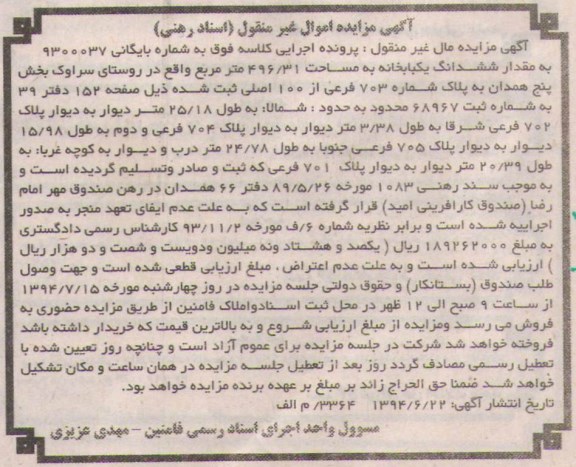 آگهی مزایده اموال غیر منقول (اسناد رهنی)
آگهی مزایده مال غیر منقول : پرونده اجرایی کلاسه فوق به شماره بایگانی ۹۳۰۰۰۳۷
به مقدار ششدانگ یکبابخانه به مساحت ۴۹۶/۳۱ متر مربع واقع در روستای سراوک بخش
پنج همدان به پلاک شماره ۷۰۳ فرعی از ۱۰۰ اصلی ثبت شده ذیل صفحه ۱۵۲ دفتر ۳۹
به شماره ثبت ۶۸۹۶۷ محدود به حدود : شمالا: به طول ۲۵/۱۸ متر دیوار به دیوار پلاک
۷۰۲ فرعی شرقا به طول ۳/۳۸ متر دیوار به دیوار پلاک ۷۰۴ فرعی و دوم به طول ۱۵/۹۸
دیوار به دیوار پلاک ۷۰۵ فرعی جنوبا به طول ۲۴/۷۸ متر درب و دیوار به کوچه غربا: به
طول ۲۰/۳۹ متر دیوار به دیوار پلاک ۷۰۱ فرعی که ثبت و صادر وتسلیم گردیده است و
به موجب سند رهنی ۱۰۸۳ مورخه ۸۹/۵/۲۶ دفتر ۶۶ همدان در رهن صندوق مهر امام
رضا (صندوق کارافرینی امید) قرار گرفته است که به علت عدم ایفای تعهد منجر به صدور
اجراییه شده است و برابر نظریه شماره ۶/ف مورخه ۹۳/۱۱/۲ کارشناس رسمی دادگستری
به مبلغ ۱۸۹۲۶۲۰۰۰ ریال ( یکصد و هشتاد ونه میلیون ودویست و شصت و دو هزار ریال
) ارزیابی شده است و به علت عدم اعتراض ، مبلغ ارزیابی قطعی شده است و جهت وصول
طلب صندوق (بستانکار) و حقوق دولتی جلسه مزایده در روز چهارشنبه مورخه ۱۳۹۴/۷/۱۵
از ساعت ۹ صبح الی ۱۲ ظهر در محل ثبت اسنادواملاک فامنین از طریق مزایده حضوری به
فروش می رسد ومزایده از مبلغ ارزیابی شروع و به بالاترین قیمت که خریدار داشته باشد
فروخته خواهد شد شرکت در جلسه مزایده برای عموم آزاد است و چنانچه روز تعیین شده با
تعطیل رسمی مصادف گردد روز بعد از تعطیل جلسه مزایده در همان ساعت و مکان تشکیل
خواهد شد ضمنا حق الحراج زائد بر مبلغ بر عهده برنده مزایده خواهد بود.
تاریخ انتشار آگهی: ۱۳۹۴/۶/۲۲ ۳۳۶۴/ م الف
مسوول واحد اجرای اسناد رسمی فامنین – مهدی عزیزی